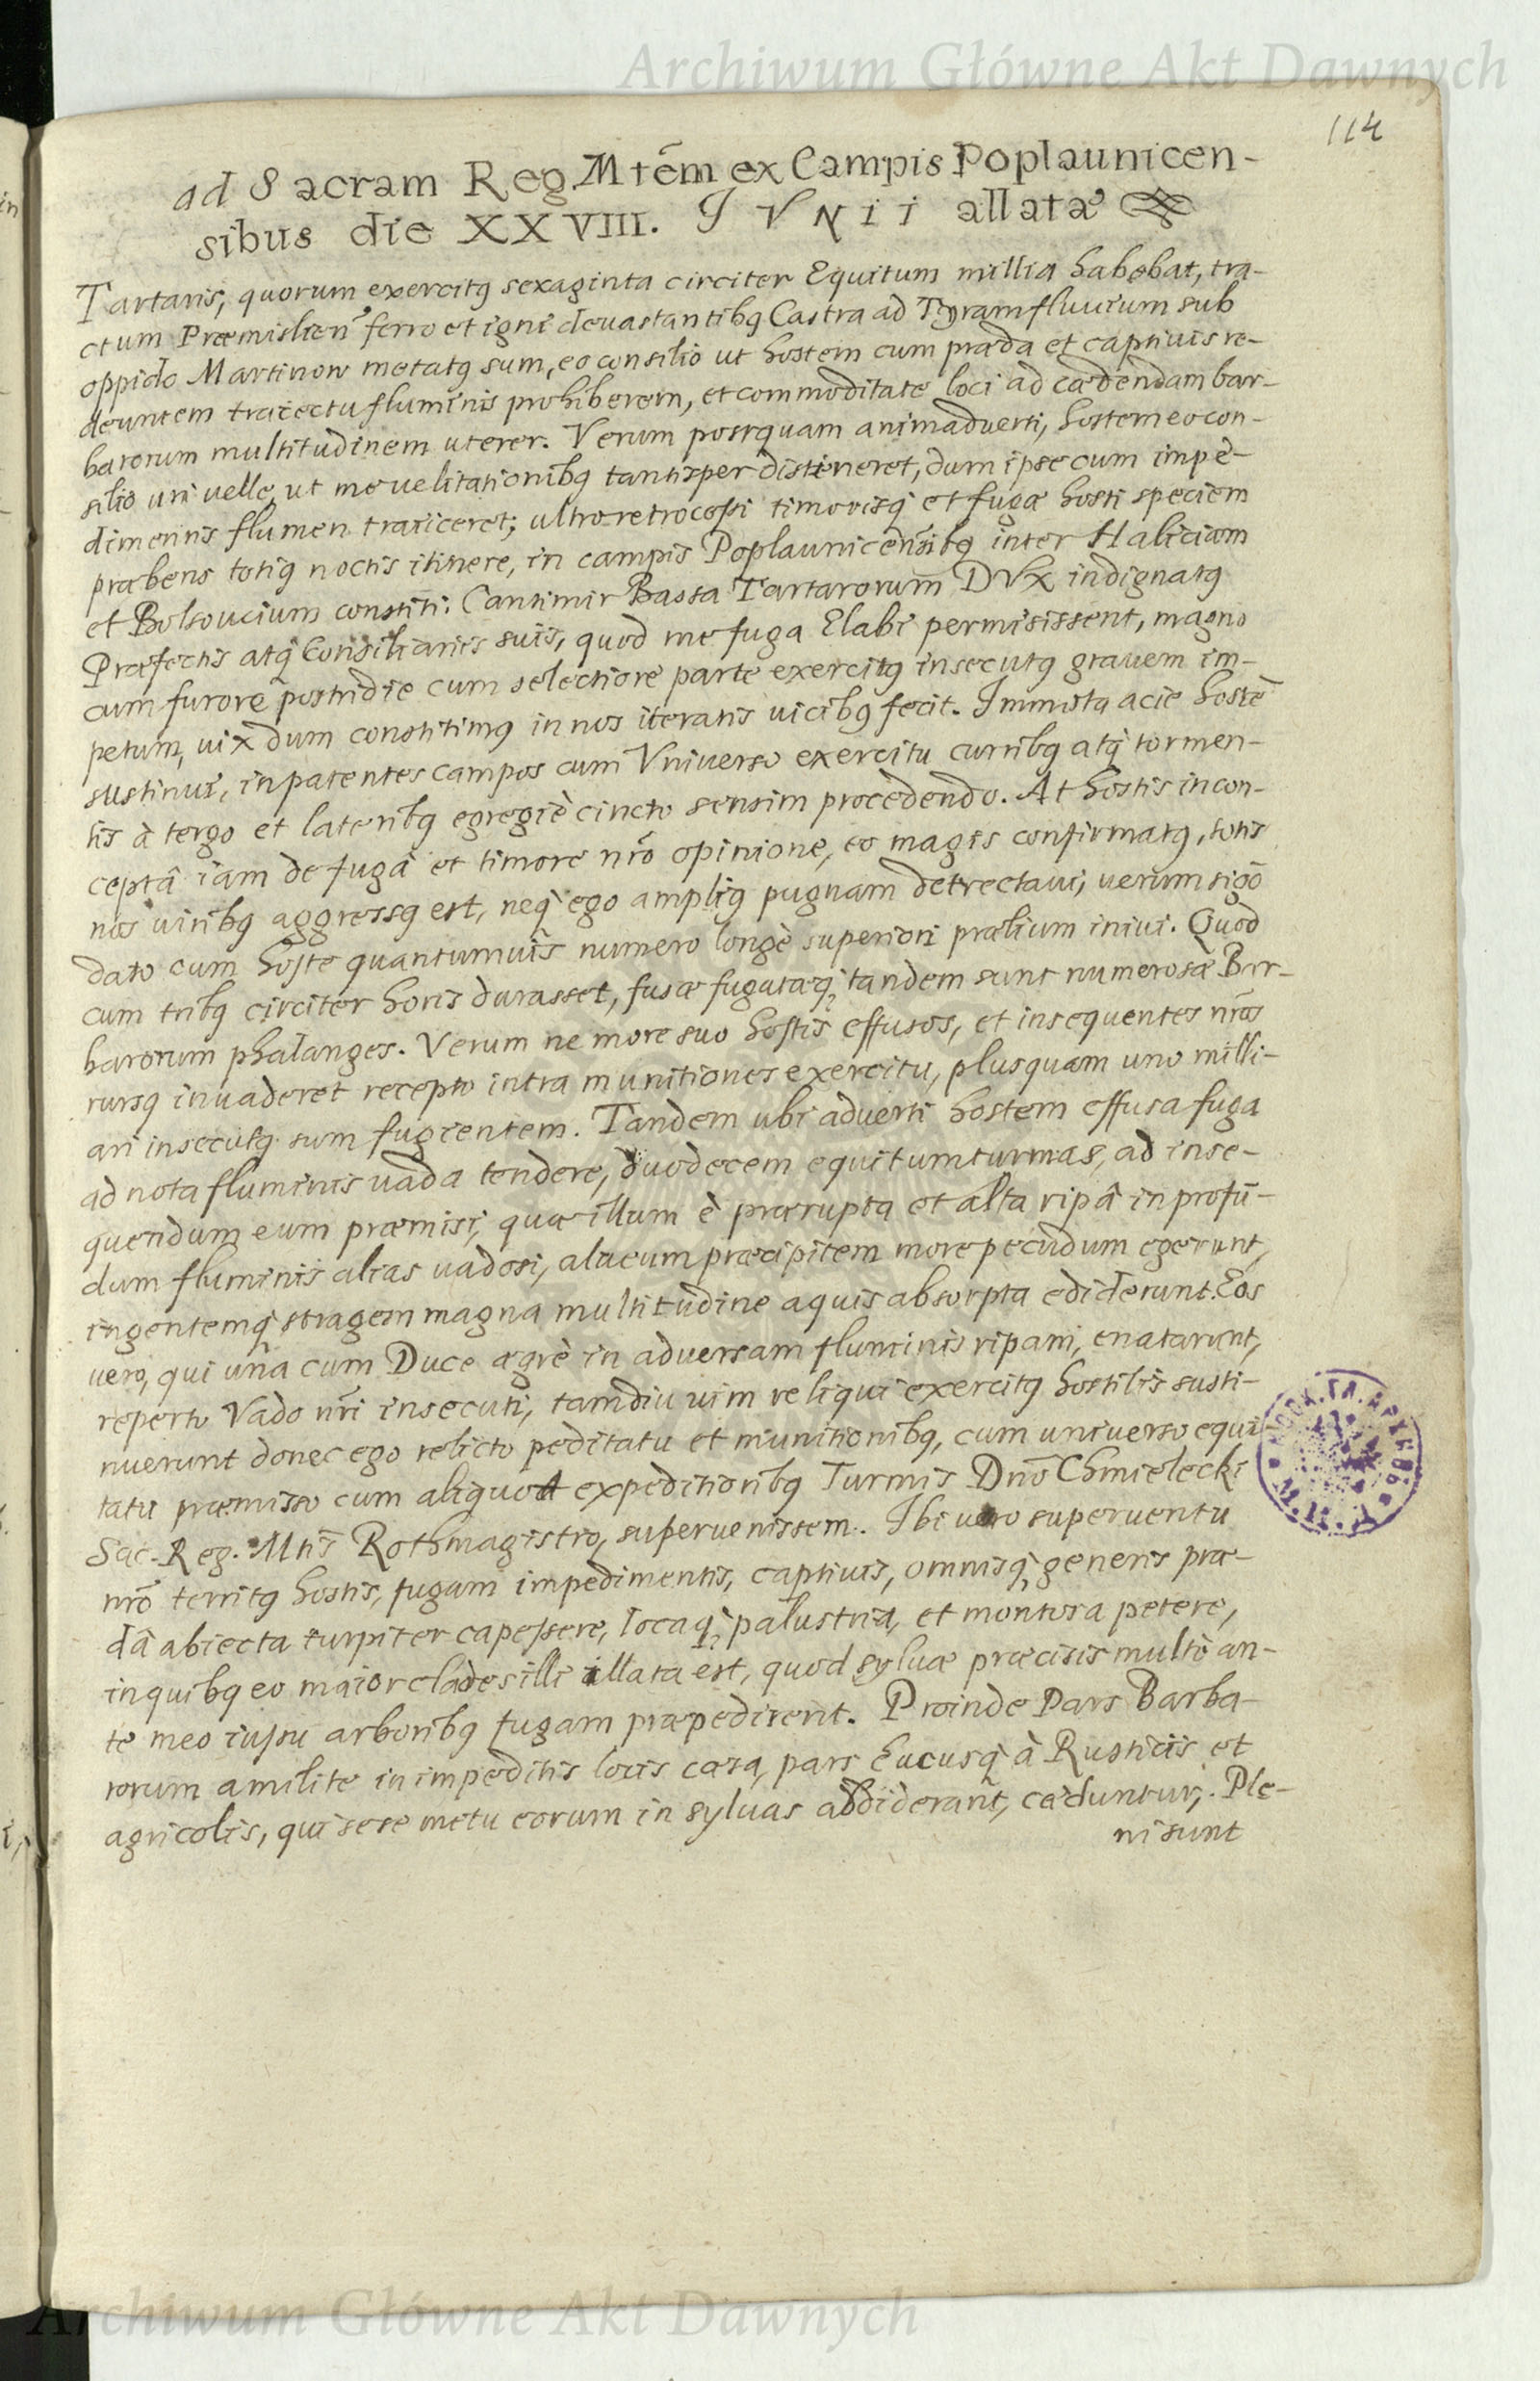 Archiwum Główne Akt Dawnych
114
ad Sacram Reg. Mtēm ex Campis Poplaunicen-
sibus die XXVIII. IVNii allatæ
Tartaris, quorum exercitq sexaginta circiter Equitum millia habebat, tra-
ctum Præmislien̄ ferro et igni deuastantibq Castra ad Tyram fluuium sub
oppido Martinow metatq sum, eo consilio ut hostem cum præda et captiuis re-
deuntem traiectu fluminis prohiberem, et commoditate loci ad cædendam bar-
barorum multitudinem uterer. Verum postquam animaduerti, hostem eo con-
silio uti velle, ut me uelitationibq tantisper distineret, dum ipse cum impè-
dimentis flumen traiiceret; ultro retrocessi timorisq̃ et fugæ hosti speciem
præbens totiq noctis itinere, in campis Poplaunicēnsibq inter Haliciam
et Bolsoucium constiti. Cantimir Bassa Tartarorum DVX indignatq
Præfectis atq̃ Consiliariis suis, quod me fuga Elabi permisissent, magno
cum furore postridie cum selectiore parte exercitq insecutq grauem im-
petum, uix dum constitimq in nos iteratis uicibq fecit. Immista acie hostē
sustinui, in patentes campos cum Vniuerso exercitu curribq atq̃ tormen-
tis à tergo et lateribq egregiè cincto sensim procedendo. At hostis incon-
ceptâ iam de fugâ et timore nr̄o opinione, eo magis confirmatq, totis
nos uiribq aggressq est, neq̃ ego ampliq pugnam detrectaui, uerum sigō
dato cum hoste quantumuis numero longè superiori prælium iniui. Quod
cum tribq circiter horis durasset, fusæ fugatæq̃ tandem sunt numerosæ Bar-
barorum phalanges. Verum ne more suo hostis effusos, et insequentes nr̄os
rursq inuaderet recepto intra munitiones exercitu, plusquam uno milli-
ari insecutq sum fugientem. Tandem ubi aduerti hostem effusa fuga
ad nota fluminis uada tendere, duodecem equitum turmas, ad inse-
quendum eum præmisi, quæ illum è prærupta et alta ripâ in profū-
dum fluminis alias uadosi, alueum præcipitem more pecudum egerunt,
ingentemq̃ stragem magna multitudine aquis absorpta ediderunt. Eos
uero, qui unà cum Duce ægrè in aduersam fluminis ripam, enatarunt,
reperto Vado nr̄i insecuti, tamdiu uim reliqui exercitq hostilis susti-
nuerunt donec ego relicto peditatu et munitionibq, cum uniuerso equi-
tatu præmisso cum aliquot expeditioribq Turmis Dnō Chmielecki
Sac. Reg. Mtis̄ Rothmagistro, superuenissem. Ibi uero superuentu
nr̄o territq hostis, fugam impedimentis, captiuis, omnisq̃ generis præ-
dâ abiecta turpiter capessere, locaq̃ palustria, et montosa petere,
in quibq eo maior clades illi illata est, quod syluæ præcisis multò an-
te meo iussu arboribq fugam præpedirent. Proinde Pars Barba-
rorum a milite in impeditis locis cæsa, pars hucusq̃ à Rusticis et
agricolis, qui sese metu eorum in syluas abdiderant, cæduntur. Ple-
ni sunt
Archiwum Główne Akt Dawnych